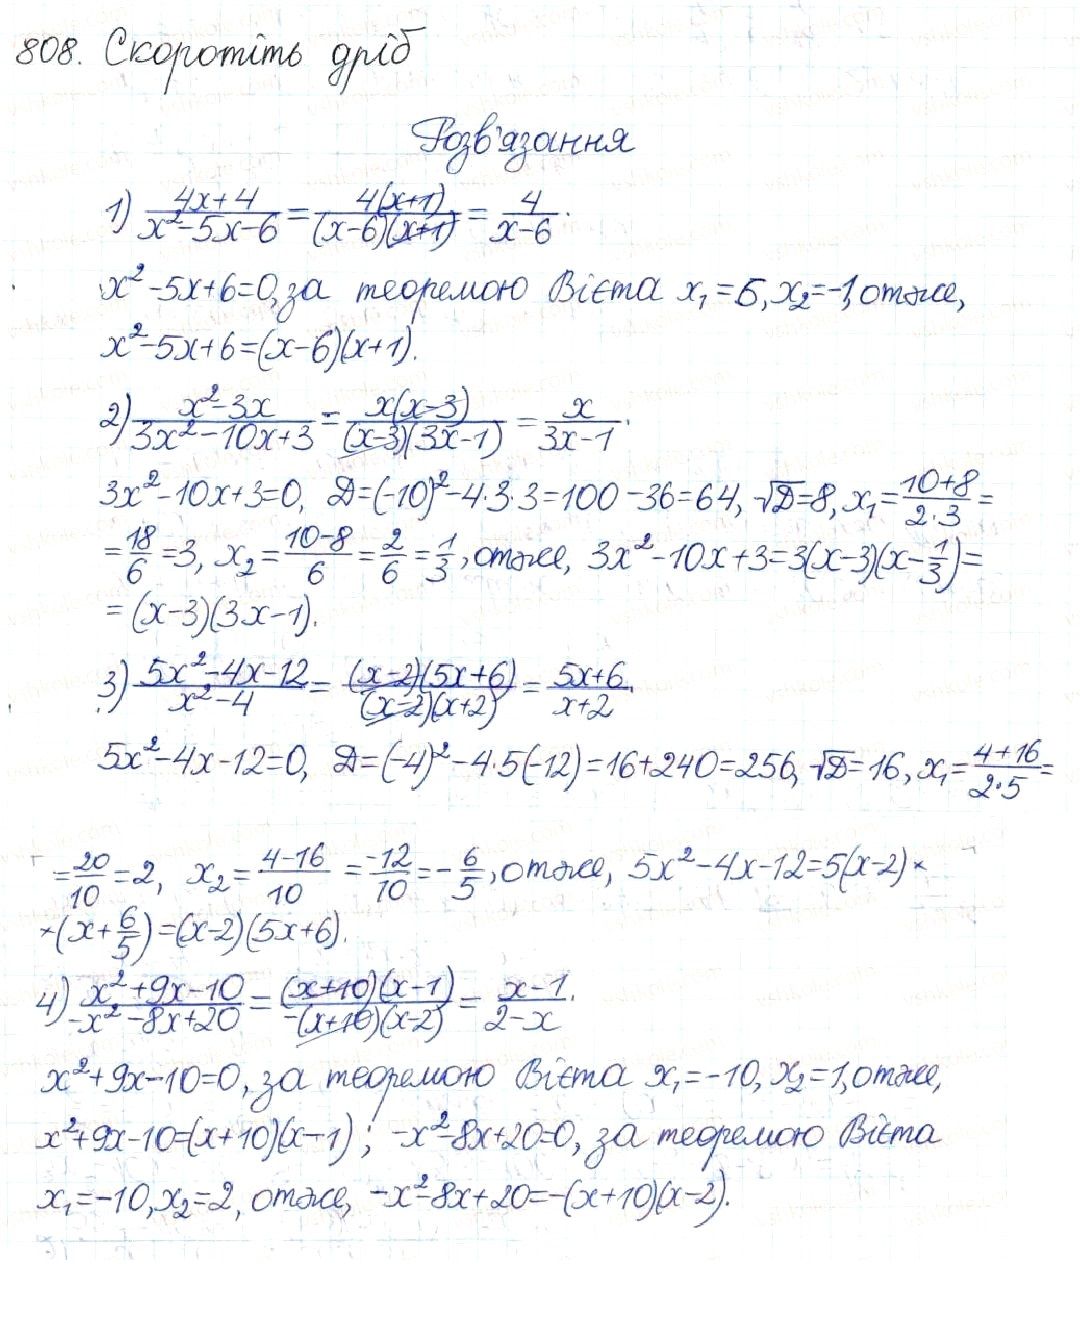 808. Скоротіть дріб
Розв'язання
1) (4x+4)/(x²-5x-6) = (4(x+1))/((x-6)(x+1)) = 4/(x-6).
x²-5x+6=0, за теоремою Вієта x₁=6, x₂=-1, отже,
x²-5x+6=(x-6)(x+1).
2) (x²-3x)/(3x²-10x+3) = (x(x-3))/((x-3)(3x-1)) = x/(3x-1).
3x²-10x+3=0, D=(-10)²-4·3·3=100-36=64, √D=8, x₁=(10+8)/(2·3)=
=18/6=3, x₂=(10-8)/6=2/6=1/3, отже, 3x²-10x+3=3(x-3)(x-1/3)=
=(x-3)(3x-1).
3) (5x²-4x-12)/(x²-4) = ((x-2)(5x+6))/((x-2)(x+2)) = (5x+6)/(x+2).
5x²-4x-12=0, D=(-4)²-4·5(-12)=16+240=256, √D=16, x₁=(4+16)/(2·5)=
=20/10=2, x₂=(4-16)/10=-12/10=-6/5, отже, 5x²-4x-12=5(x-2)×
×(x+6/5)=(x-2)(5x+6).
4) (x²+9x-10)/(-x²-8x+20) = ((x+10)(x-1))/(-(x+10)(x-2)) = (x-1)/(2-x).
x²+9x-10=0, за теоремою Вієта x₁=-10, x₂=1, отже,
x²+9x-10=(x+10)(x-1); -x²-8x+20=0, за теоремою Вієта
x₁=-10, x₂=2, отже, -x²-8x+20=-(x+10)(x-2).